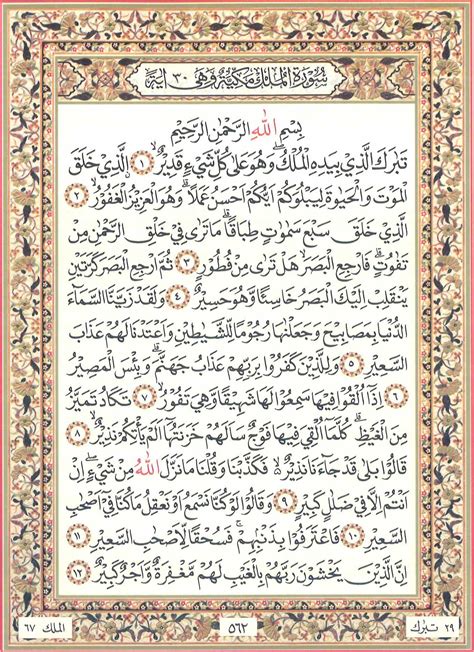 سُورَةُ الْمُلْكِ مَكِّيَّةٌ وَهِيَ ٣٠ اٰيَةً
بِسْمِ اللهِ الرَّحْمٰنِ الرَّحِيمِ
تَبَارَكَ الَّذِي بِيَدِهِ الْمُلْكُ وَهُوَ عَلٰى كُلِّ شَيْءٍ قَدِيرٌ ﴿١﴾ الَّذِي خَلَقَ
الْمَوْتَ وَالْحَيٰوةَ لِيَبْلُوَكُمْ اَيُّكُمْ اَحْسَنُ عَمَلًا وَهُوَ الْعَزِيزُ الْغَفُورُ ﴿٢﴾
الَّذِي خَلَقَ سَبْعَ سَمٰوَاتٍ طِبَاقًا مَا تَرٰى فِي خَلْقِ الرَّحْمٰنِ مِنْ
تَفَاوُتٍ فَارْجِعِ الْبَصَرَ هَلْ تَرٰى مِنْ فُطُورٍ ﴿٣﴾ ثُمَّ ارْجِعِ الْبَصَرَ كَرَّتَيْنِ
يَنْقَلِبْ اِلَيْكَ الْبَصَرُ خَاسِئًا وَهُوَ حَسِيرٌ ﴿٤﴾ وَلَقَدْ زَيَّنَّا السَّمَاءَ
الدُّنْيَا بِمَصَابِيحَ وَجَعَلْنَاهَا رُجُومًا لِلشَّيَاطِينِ وَاَعْتَدْنَا لَهُمْ عَذَابَ
السَّعِيرِ ﴿٥﴾ وَلِلَّذِينَ كَفَرُوا بِرَبِّهِمْ عَذَابُ جَهَنَّمَ وَبِئْسَ الْمَصِيرُ
﴿٦﴾ اِذَا اُلْقُوا فِيهَا سَمِعُوا لَهَا شَهِيقًا وَهِيَ تَفُورُ ﴿٧﴾ تَكَادُ تَمَيَّزُ
مِنَ الْغَيْظِ كُلَّمَا اُلْقِيَ فِيهَا فَوْجٌ سَاَلَهُمْ خَزَنَتُهَا اَلَمْ يَأْتِكُمْ نَذِيرٌ ﴿٨﴾
قَالُوا بَلٰى قَدْ جَاءَنَا نَذِيرٌ فَكَذَّبْنَا وَقُلْنَا مَا نَزَّلَ اللهُ مِنْ شَيْءٍ اِنْ
اَنْتُمْ اِلَّا فِي ضَلَالٍ كَبِيرٍ ﴿٩﴾ وَقَالُوا لَوْ كُنَّا نَسْمَعُ اَوْ نَعْقِلُ مَا كُنَّا فِي اَصْحَابِ
السَّعِيرِ ﴿١٠﴾ فَاعْتَرَفُوا بِذَنْبِهِمْ فَسُحْقًا لِاَصْحَابِ السَّعِيرِ ﴿١١﴾
اِنَّ الَّذِينَ يَخْشَوْنَ رَبَّهُمْ بِالْغَيْبِ لَهُمْ مَغْفِرَةٌ وَاَجْرٌ كَبِيرٌ ﴿١٢﴾
٢٩ تبرك
٥٦٢
الملك ٦٧